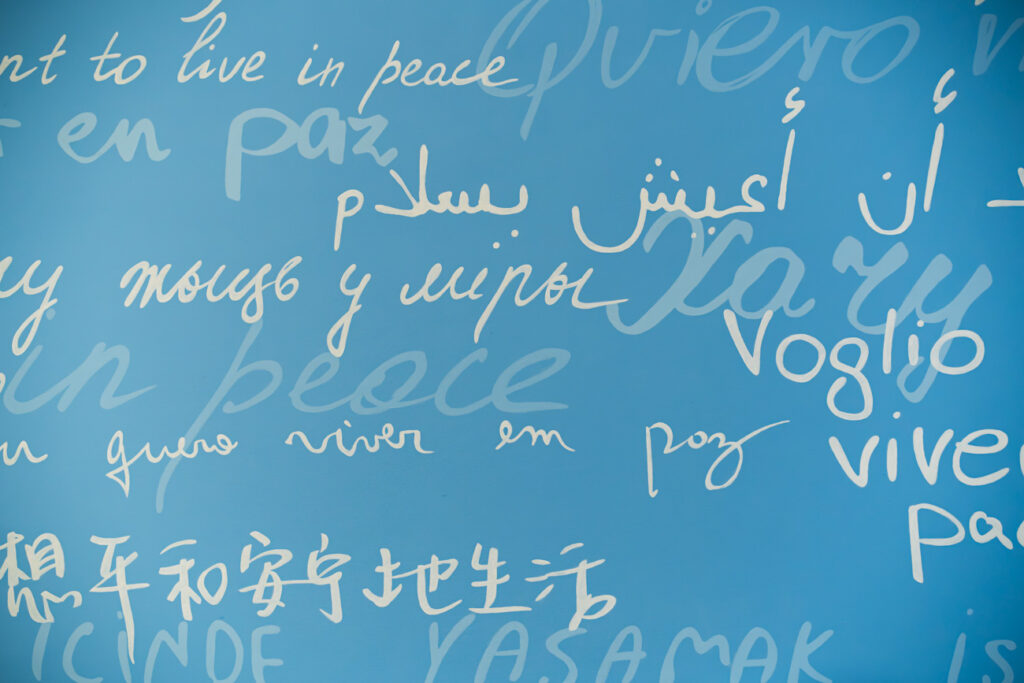 nt to live in peace
Quiero
en paz
أن أعيش بسلام
жыць у міры
Хачу
in peace
Voglio
u quero viver em paz
vive
pa
想平和安宁地生活
İCİNDE YASAMAK is